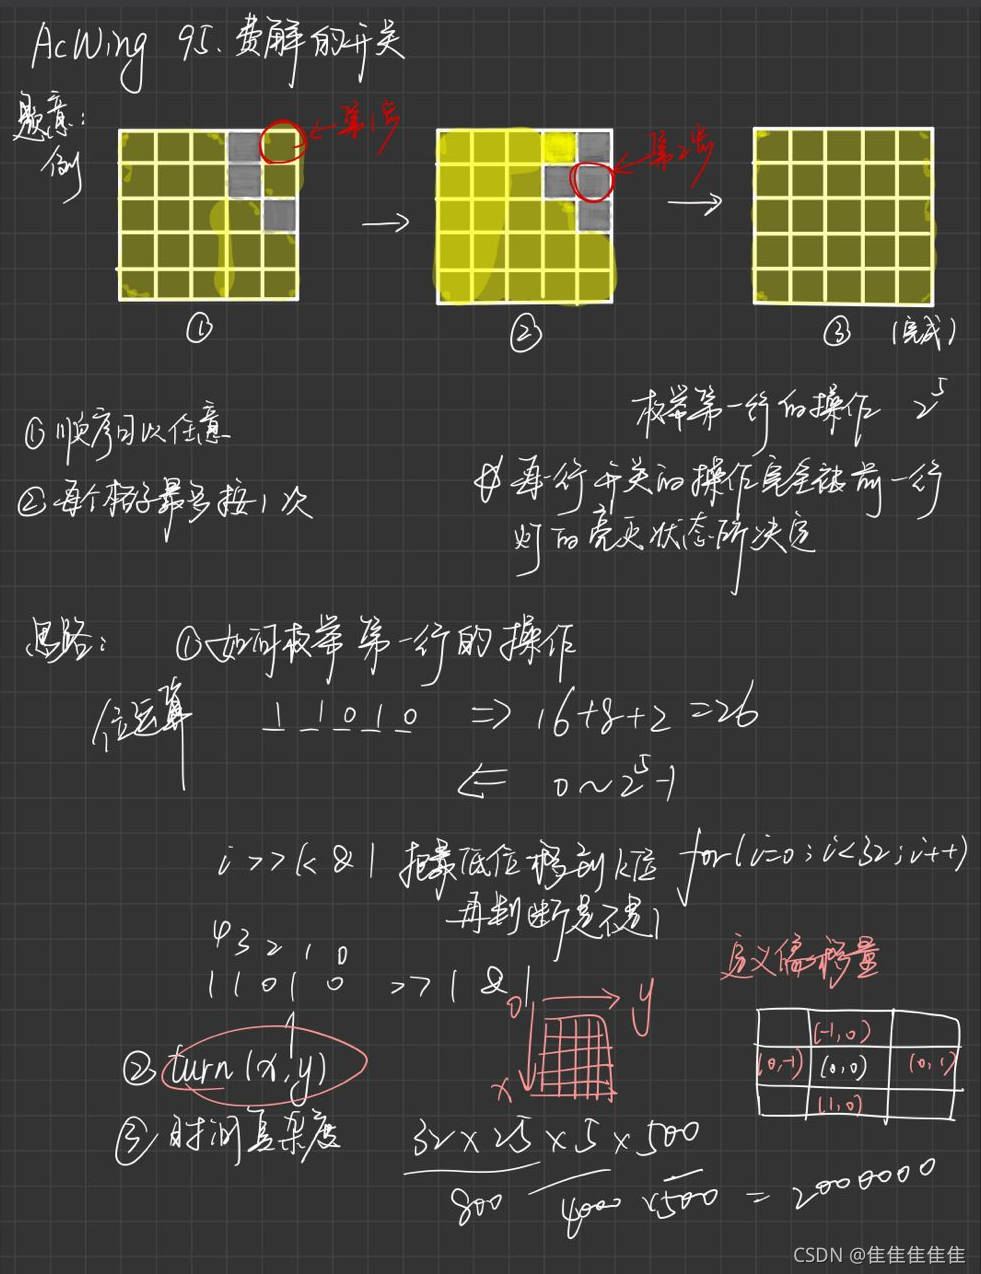 AcWing 95. 费解的开关
题意:
例
第1步
第2步
① ② ③ (完成)
① 顺序可以任意
② 每个格子最多按1次
枚举第一行的操作 2^5
每一行开关的操作完全被前一行
灯的亮灭状态所决定
思路: ①如何枚举第一行的操作
位运算 1 1 0 1 0 => 16+8+2=26
<= 0~2^5-1
i>>k&1 把最低位移到k位 for(i=0;i<32;i++)
再判断是不是1
4 3 2 1 0
1 1 0 1 0 >>1 &1
0 y
x
定义偏移量
(-1,0)
(0,-1) (0,0) (0,1)
(1,0)
② turn(x,y)
③ 时间复杂度 32×25×5×500
800 4000 ×500 = 2000000
CSDN @隹隹隹隹隹